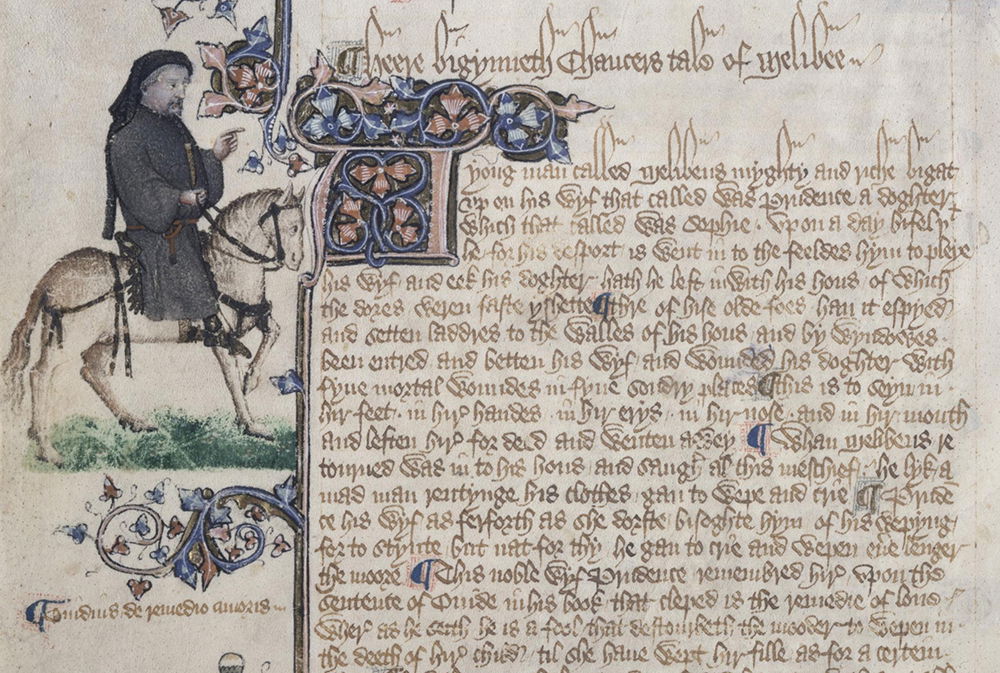 ¶ Heere bigynneth Chaucers tale of Melibee
A
yong man called Melibeus myghty and riche bigat
vp on his wyf that called was Prudence a doghter
Which that called was Sophie. Vpon a day bifel þt
he for his desport is went in to the feeldes hym to pleye
his wyf and eek his doghter hath he left inwith his hous of which
the dores weren faste yshette ¶ thre of hise olde foes han it espyed
and setten laddres to the walles of his hous and by wyndowes
been entred and betten his wyf and wounded his doghter with
fyue mortal woundes in fyue sondry places ¶ this is to seyn in
hir feet. in hir handes. in hir erys. in hir nose. and in hir mouth
and leften hir for deed and wenten awey ¶ Whan Melibeus re
tourned was in to his hous and saugh al this meschief. he lyk a
mad man rentynge his clothes. gan to wepe and crie ¶ Pruden
ce his wyf as ferforth as she dorste. bisoghte hym of his wepyng
for to stynte. but nat for thy he gan to crie and wepen euere lenger
the moore ¶ This noble wyf Prudence remembred hir vpon the
sentence of Ouide in his book that cleped is the remedie of loue
Wher as he seith he is a fool that destourbeth the mooder to wepen in
the deeth of hir child til she haue wept hir fille as for a certein
¶ Ouidius de remedio amoris